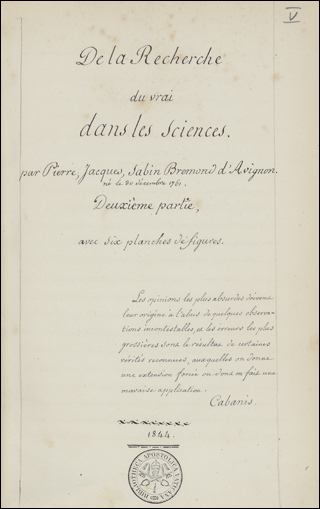 V
De la Recherche
du vrai
dans les sciences.
par Pierre, Jacques, Sabin Bremond d'Avignon.
né le 30 décembre 1761.
Deuxième partie,
avec six planches de figures.
Les opinions les plus absurdes doivent
leur origine à l'abus de quelques observa-
tions incontestables, et les erreurs les plus
grossières sont le résultat de certaines
vérités reconnues, auxquelles on donne
une extension forcée ou dont on fait une
mauvaise application.
Cabanis.
1844.
BIBLIOTHECA APOSTOLICA VATICANA